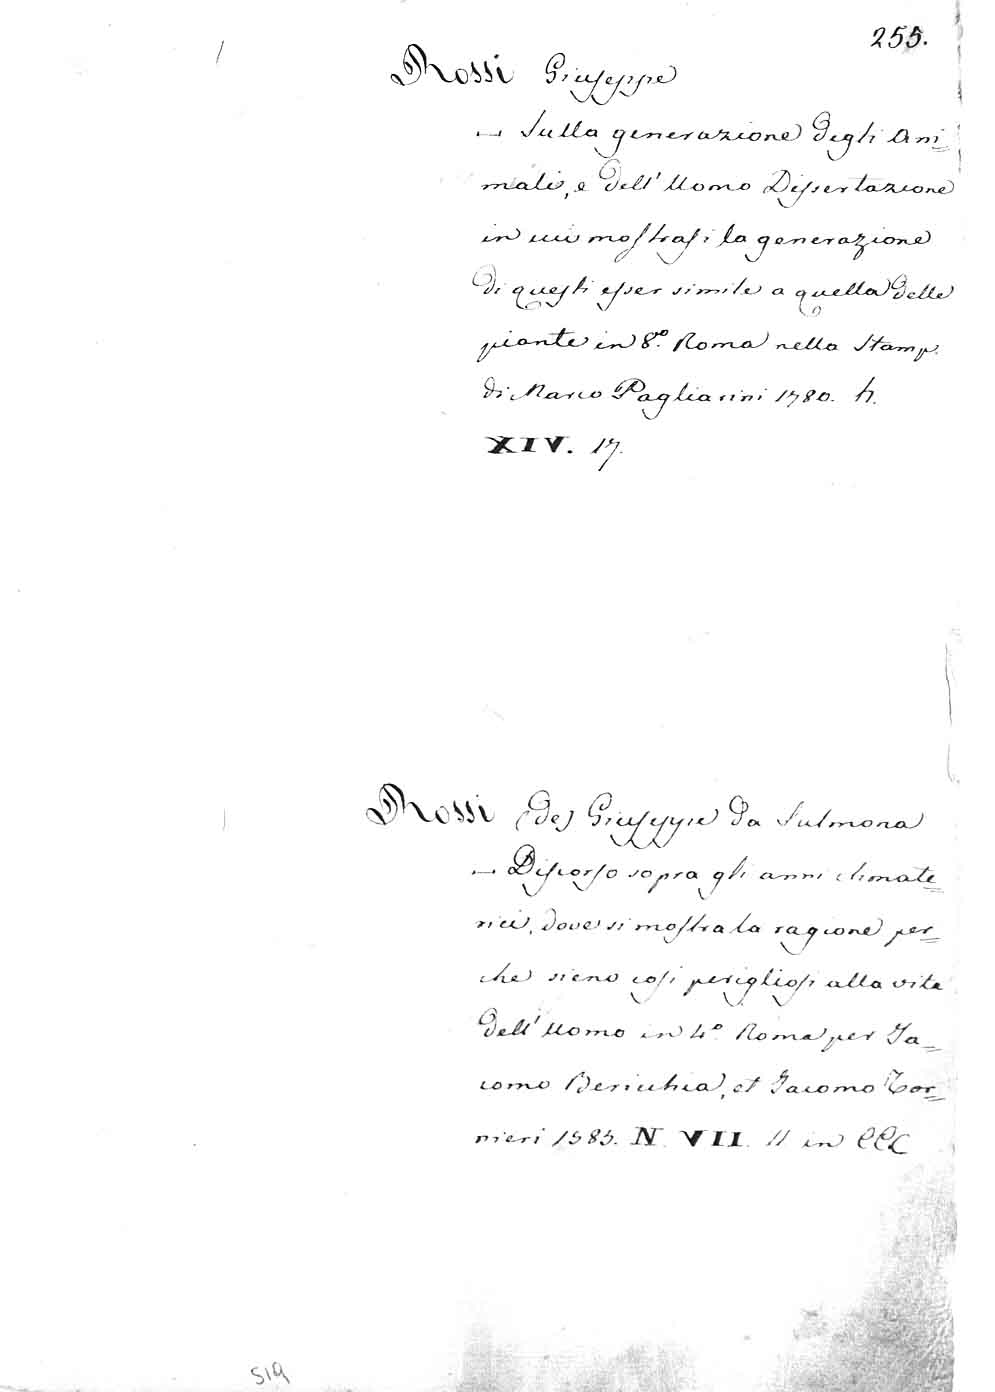 255.
Rossi Giuseppe
— Sulla generazione degli Ani=
mali, e dell' Uomo Dissertazione
in cui mostrasi la generazione
di questi esser simile a quella delle
piante in 8.º Roma nella Stamp.
di Marco Pagliarini 1780. h.
XIV. 17.
Rossi (de) Giuseppe da Sulmona
— Discorso sopra gli anni climate=
rici, dove si mostra la ragione per=
che sieno così perigliosi alla vita
dell' Uomo in 4.º Roma per Ja=
como Bericchia, et Jacomo Tor=
nieri 1585. N. VII. 11 in
519